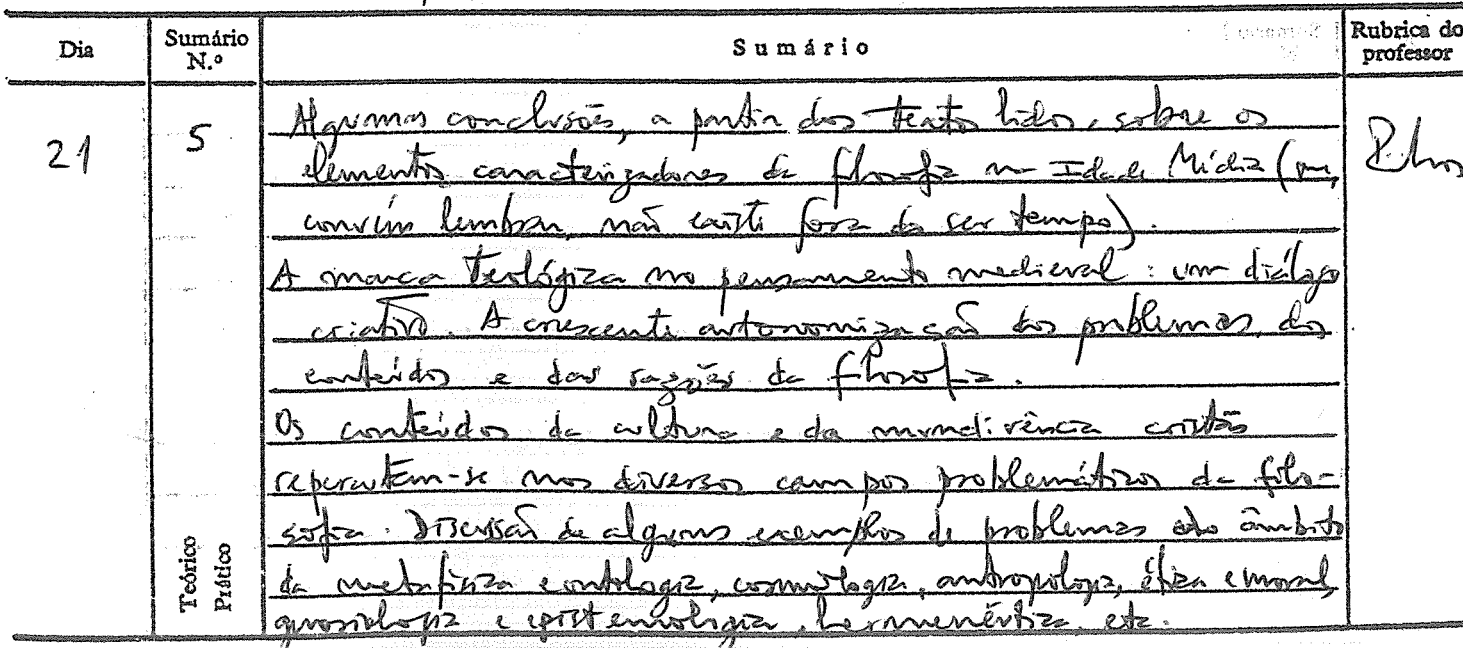 Dia
Sumário N.º
Sumário
Rubrica do professor
21
5
Algumas conclusões, a partir dos textos lidos, sobre os
elementos caracterizadores da filosofia na Idade Média (que,
convém lembrar, não existe fora do seu tempo).
A marca teológica no pensamento medieval: um diálogo
criativo. A crescente autonomização dos problemas, dos
conteúdos e das razões da filosofia.
Os conteúdos da cultura e da mundividência cristãs
repercutem-se nos diversos campos problemáticos da filo-
sofia. Discussão de alguns exemplos de problemas do âmbito
da metafísica e ontologia, cosmologia, antropologia, ética e moral,
gnosiologia e epistemologia, hermenêutica, etc.
Teórico
Prático